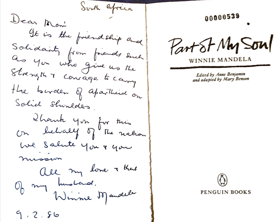 South Africa
Dear Moni
It is the friendship and
Solidarity from friends such
as you who give us the
Strength & courage to carry
the burden of apartheid on
Solid shoulders.
Thank you for this
on behalf of the nation
we salute you & your
mission
All my love & that
of my husband,
Winnie Mandela
9.2.86
00000539
Part of My Soul
WINNIE MANDELA
Edited by Anne Benjamin
and adapted by Mary Benson
PENGUIN BOOKS